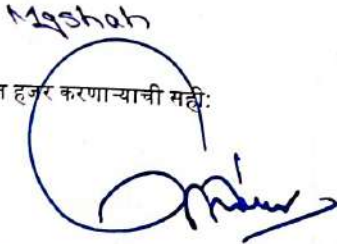 Mgshah
त हजर करणाऱ्याची सही: